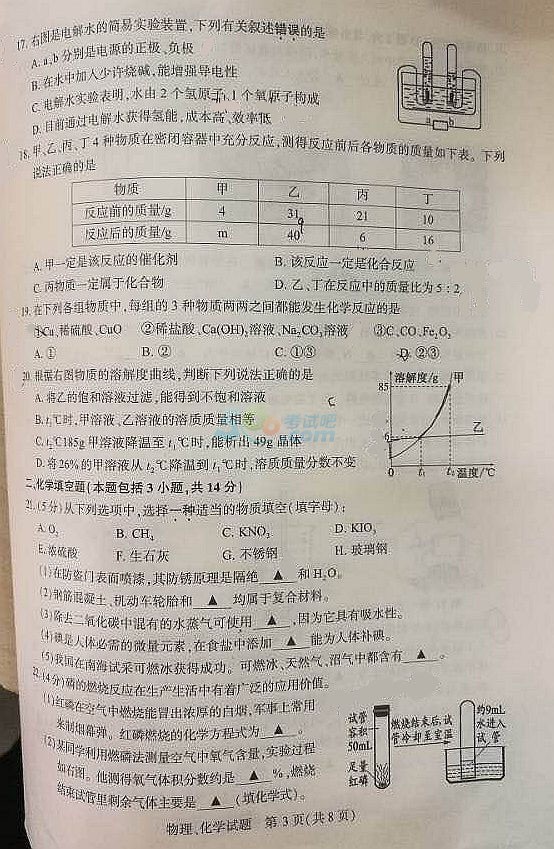 17. 右图是电解水的简易实验装置,下列有关叙述错误的是
A. a、b 分别是电源的正极、负极
B. 在水中加入少许烧碱,能增强导电性
C. 电解水实验表明,水由 2 个氢原子、1 个氧原子构成
D. 目前通过电解水获得氢能,成本高、效率低
a b
18. 甲、乙、丙、丁 4 种物质在密闭容器中充分反应,测得反应前后各物质的质量如下表。下列
说法正确的是
物质 甲 乙 丙 丁
反应前的质量/g 4 31 21 10
反应后的质量/g m 40 6 16
A. 甲一定是该反应的催化剂 B. 该反应一定是化合反应
C. 丙物质一定属于化合物 D. 乙、丁在反应中的质量比为 5 : 2
19. 在下列各组物质中,每组的 3 种物质两两之间都能发生化学反应的是
①Cu、稀硫酸、CuO ②稀盐酸、Ca(OH)₂溶液、Na₂CO₃溶液 ③C、CO、Fe₂O₃
A. ① B. ② C. ①③ D. ②③
20. 根据右图物质的溶解度曲线,判断下列说法正确的是
A. 将乙的饱和溶液过滤,能得到不饱和溶液
B. t₁℃时,甲溶液、乙溶液的溶质质量相等
C. t₂℃185g 甲溶液降温至 t₁℃时,能析出 49g 晶体
D. 将26%的甲溶液从 t₂℃降温到 t₁℃时,溶质质量分数不变
C
溶解度/g 甲
85
乙
6
0 t₁ t₂ 温度/℃
考试吧
二、化学填空题(本题包括 3 小题,共 14 分)
21. (5分)从下列选项中,选择一种适当的物质填空(填字母):
A. O₂ B. CH₄ C. KNO₃ D. KIO₃
E. 浓硫酸 F. 生石灰 G. 不锈钢 H. 玻璃钢
(1)在防盗门表面喷漆,其防锈原理是隔绝 ▲ 和 H₂O。
(2)钢筋混凝土、机动车轮胎和 ▲ 均属于复合材料。
(3)除去二氧化碳中混有的水蒸气可使用 ▲ ,因为它具有吸水性。
(4)碘是人体必需的微量元素,在食盐中添加 ▲ 能为人体补碘。
(5)我国在南海试采可燃冰获得成功。可燃冰、天然气、沼气中都含有 ▲ 。
22. (4分)磷的燃烧反应在生产生活中有着广泛的应用价值。
(1)红磷在空气中燃烧能冒出浓厚的白烟,军事上常用
来制烟幕弹。红磷燃烧的化学方程式为 ▲ 。
(2)某同学利用燃磷法测量空气中氧气含量,实验过程
如右图。他测得氧气体积分数约是 ▲ %,燃烧
结束试管里剩余气体主要是 ▲ (填化学式)。
试管
容积
50mL
足量
红磷
燃烧结束后,试
管冷却至室温
约9mL
水进入
试管
物理、化学试题 第 3 页(共 8 页)